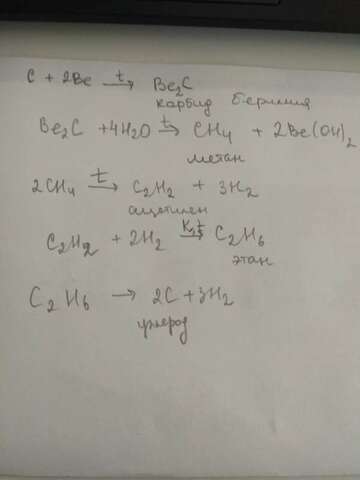 C + 2Be t→ Be₂C
карбид бериллия
Be₂C + 4H₂O t→ CH₄ + 2Be(OH)₂
метан
2CH₄ t→ C₂H₂ + 3H₂
ацетилен
C₂H₂ + 2H₂ K, t→ C₂H₆
этан
C₂H₆ → 2C + 3H₂
углерод